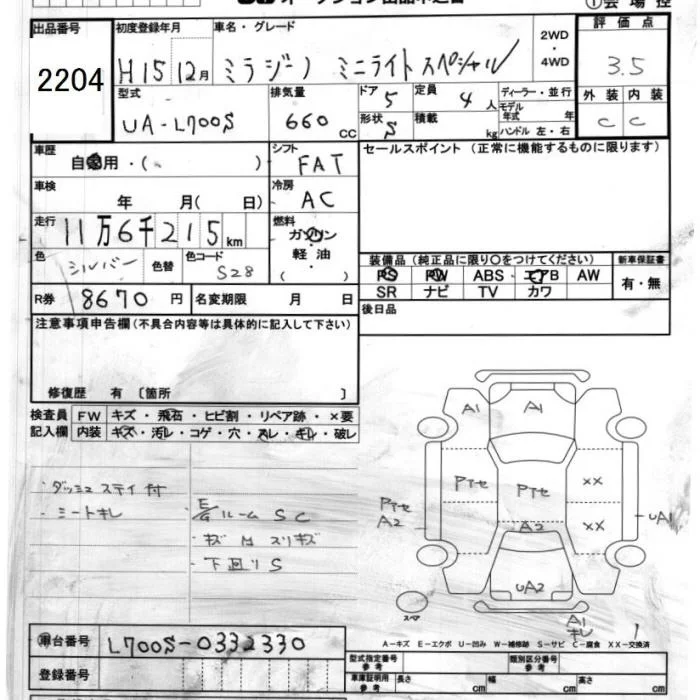 出品番号
2204
初度登録年月
H15 12月
車名・グレード
ミラジーノ ミニライトスペシャル
2WD
・
4WD
評価点
3.5
型式
UA-L700S
排気量
660 CC
ドア 5
定員 4 人
形状 S
積載 kg
ディーラー・並行
モデル年式 年
ハンドル 左・右
外装 内装
C C
車歴
自家用・( )
シフト
FAT
セールスポイント(正常に機能するものに限ります)
車検
年 月( 日)
冷房
AC
走行
11万6千215km
燃料
ガソリン
軽油
( )
色
シルバー
色替
色コード
S28
装備品(純正品に限り○をつけてください)
新車保証書
PS PW ABS エアB AW
SR ナビ TV カワ
有・無
R券 8670 円
名変期限 月 日
後日品
注意事項申告欄(不具合内容等は具体的に記入して下さい)
修復歴 有 〔箇所 〕
検査員 FW キズ・飛石・ヒビ割・リペア跡・×要
記入欄 内装 キズ・汚レ・コゲ・穴・スレ・キレ・破レ
・ダッシュステイ付
・シートキレ
・E/Gルーム SC
・キズ M スリキズ
・下回りS
A1 A1
Pナセ Pナセ XX
Pナセ
A2
A2 XX UA1
UA2
スペア
A1
キレ
A−キズ E−エクボ U−凹み W−補修跡 S−サビ C−腐食 XX−交換済
車台番号 L700S-0332330
登録番号
型式指定番号 参考
類別区分番号 参考
車庫証明用 参考 長さ cm 幅 cm 高さ cm